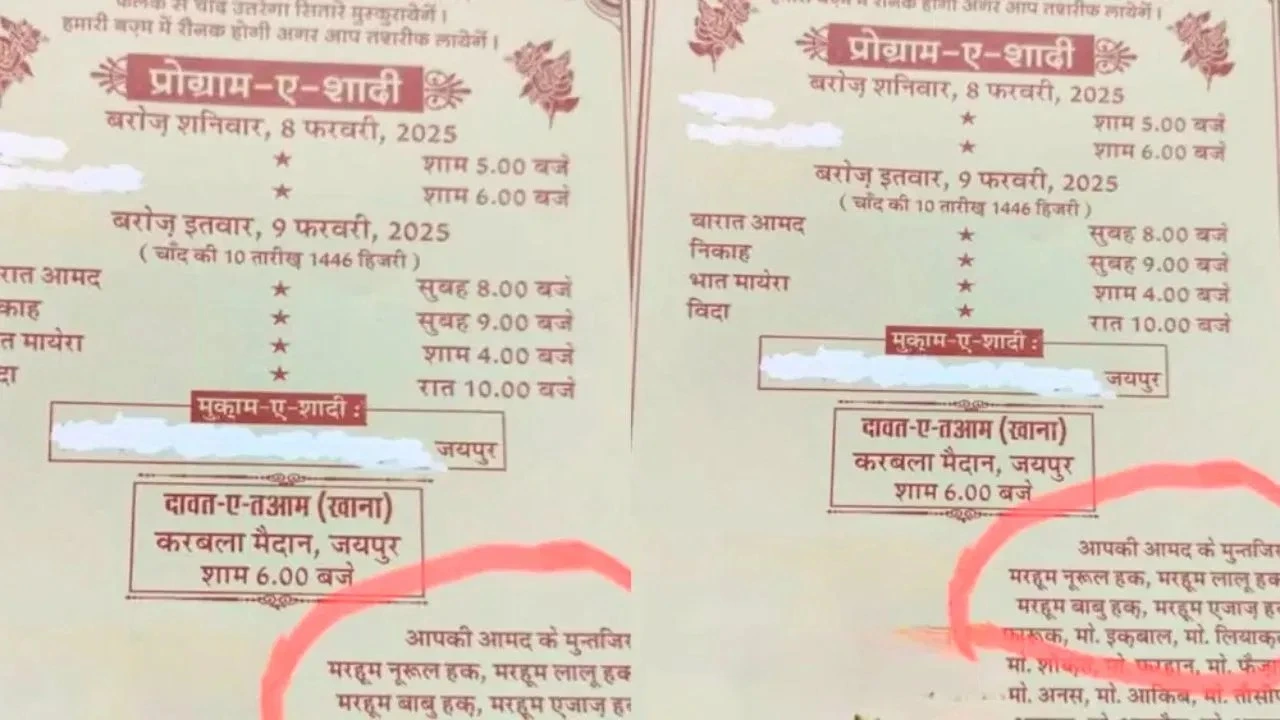 फलक से चाँद उतरेगा सितारे मुस्कुरायेगें।
हमारी बज़्म में रौनक होगी अगर आप तशरीफ लायेगें।
प्रोग्राम-ए-शादी
बरोज़ शनिवार, 8 फरवरी, 2025
★ शाम 5.00 बजे
★ शाम 6.00 बजे
बरोज़ इतवार, 9 फरवरी, 2025
( चाँद की 10 तारीख़ 1446 हिजरी )
रात आमद ★ सुबह 8.00 बजे
काह ★ सुबह 9.00 बजे
त मायेरा ★ शाम 4.00 बजे
दा ★ रात 10.00 बजे
मुक़ाम-ए-शादी :
जयपुर
दावत-ए-तआम (खाना)
करबला मैदान, जयपुर
शाम 6.00 बजे
आपकी आमद के मुन्तजिर
मरहूम नूरूल हक, मरहूम लालू हक
मरहूम बाबु हक़, मरहूम एजाज़ ह
हमारी बज़्म में रौनक होगी अगर आप तशरीफ लायेगें।
प्रोग्राम-ए-शादी
बरोज़ शनिवार, 8 फरवरी, 2025
★ शाम 5.00 बजे
★ शाम 6.00 बजे
बरोज़ इतवार, 9 फरवरी, 2025
( चाँद की 10 तारीख़ 1446 हिजरी )
बारात आमद ★ सुबह 8.00 बजे
निकाह ★ सुबह 9.00 बजे
भात मायेरा ★ शाम 4.00 बजे
विदा ★ रात 10.00 बजे
मुक़ाम-ए-शादी :
जयपुर
दावत-ए-तआम (खाना)
करबला मैदान, जयपुर
शाम 6.00 बजे
आपकी आमद के मुन्तजिर
मरहूम नूरूल हक, मरहूम लालू हक
मरहूम बाबु हक़, मरहूम एजाज़ ह
फ़ारूक, मो. इक़बाल, मो. लियाक़
मो. शौकत, मो. फरहान, मो. फैज़ा
मो. अनस, मो. आकिब, मो. तौसी